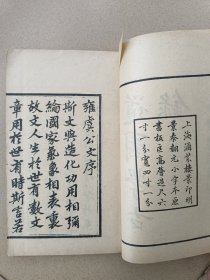 上海涵芬樓景印明
景泰翻元小字本原
書板匡高營造尺六
寸一分寬四寸一分
雍虞公文序
斯文與造化功用相彌
綸國家氣象相表裏
故文人生於世有數文
章用於世有時斯言若